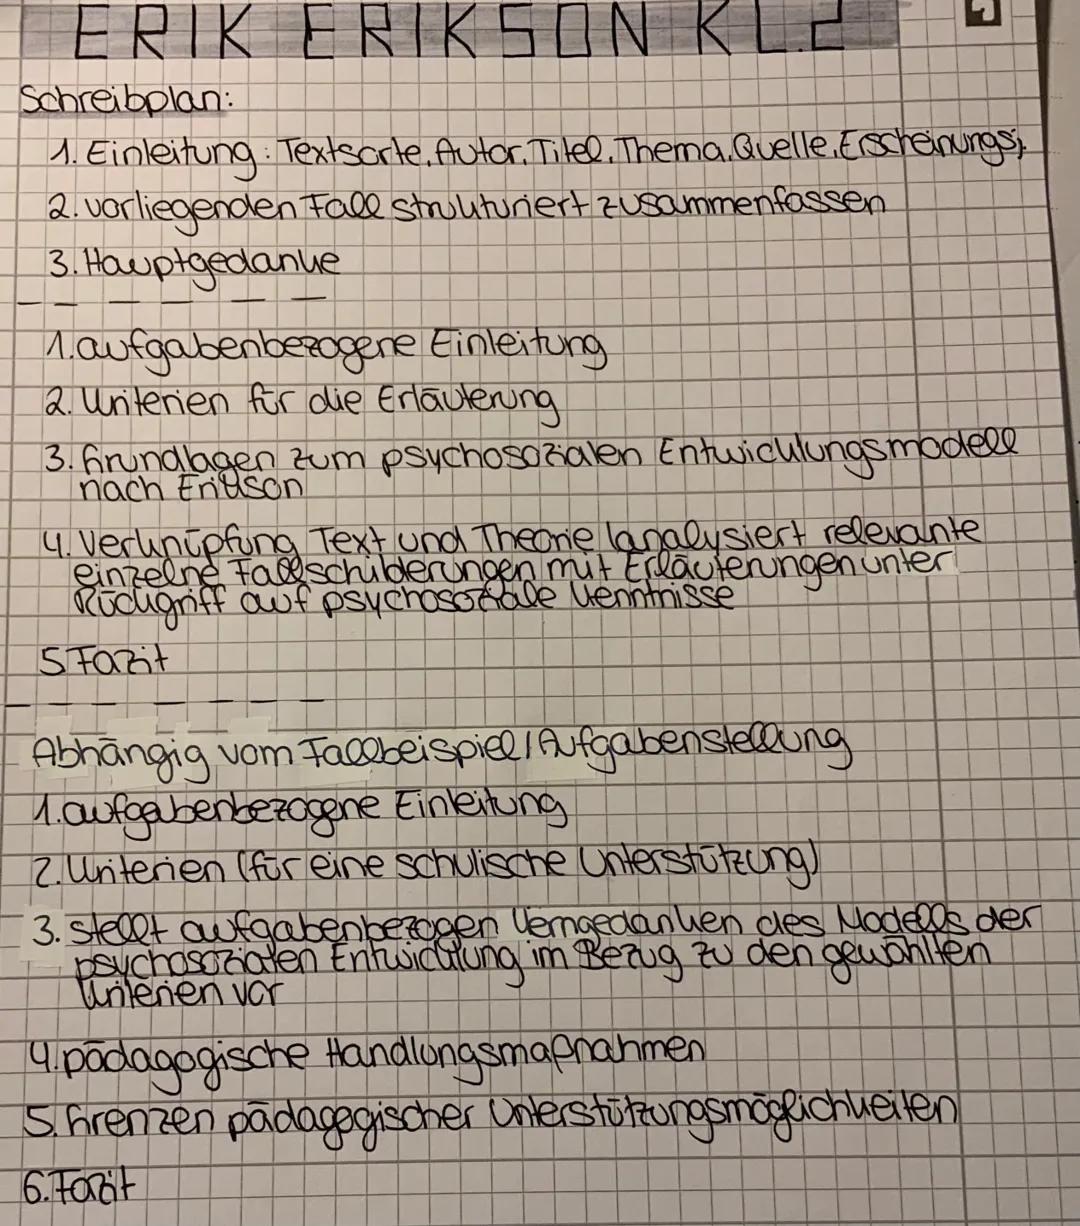 ERIK ERIKSON KL.2
Schreibplan:
1. Einleitung: Textsorte, Autor, Titel, Thema, Quelle, Erscheinungsj.
2. vorliegenden Fall strukturiert zusammenfassen
3. Hauptgedanke
1. aufgabenbezogene Einleitung
2. Kriterien für die Erläuterung
3. Grundlagen zum psychosozialen Entwicklungsmodell
nach Erikson
4. Verknüpfung Text und Theorie (analysiert relevante
einzelne Fallschilderungen mit Erläuterungen unter
Rückgriff auf psychosoziale Kenntnisse
5 Fazit
Abhängig vom Fallbeispiel/Aufgabenstellung
1. aufgabenbezogene Einleitung
2. Kriterien (für eine schulische Unterstützung)
3. stellt aufgabenbezogen Kerngedanken des Modells der
psychosozialen Entwicklung im Bezug zu den gewählten
Kriterien vor
4. pädagogische Handlungsmaßnahmen
5. Grenzen pädagogischer Unterstützungsmöglichkeiten
6. Fazit